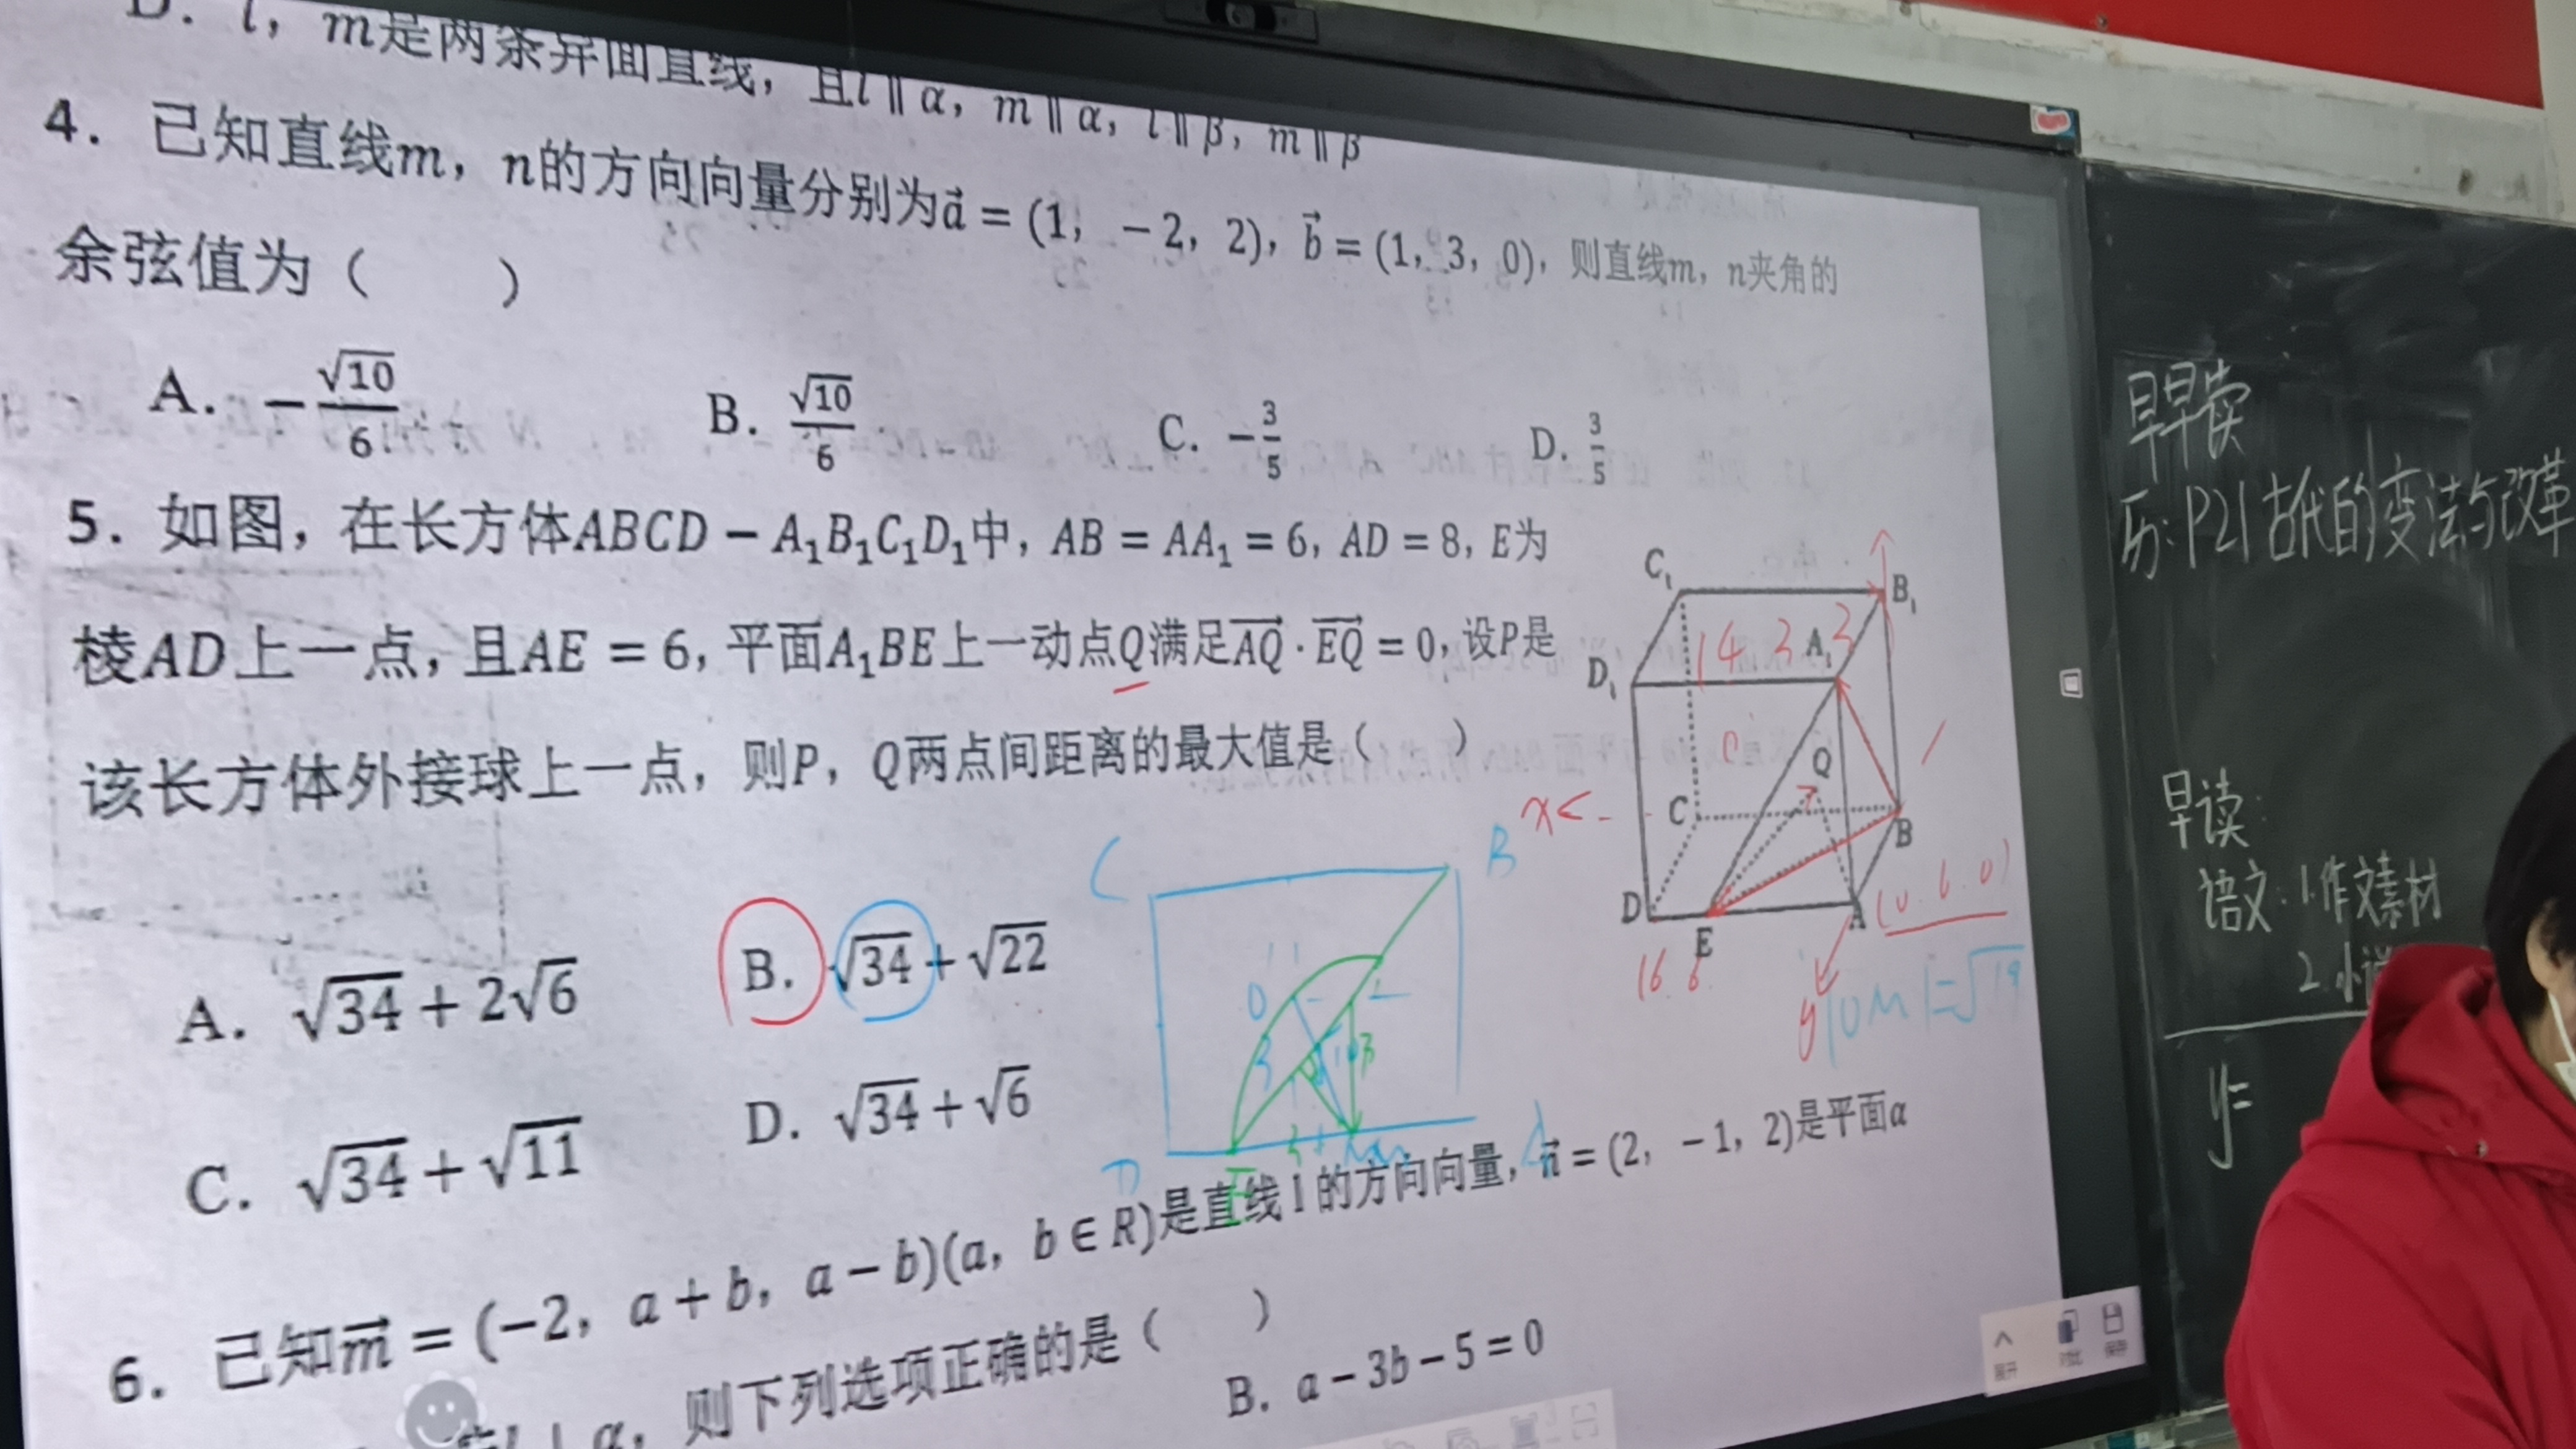 D. l，m是两条异面直线，且l∥α，m∥α，l∥β，m∥β
4. 已知直线m，n的方向向量分别为a⃗ = (1，－2，2)，b⃗ = (1，3，0)，则直线m，n夹角的
余弦值为（　　）
A. −√10/6　B. √10/6　C. −3/5　D. 3/5
5. 如图，在长方体ABCD − A₁B₁C₁D₁中，AB = AA₁ = 6，AD = 8，E为
棱AD上一点，且AE = 6，平面A₁BE上一动点Q满足AQ⃗ · EQ⃗ = 0，设P是
该长方体外接球上一点，则P，Q两点间距离的最大值是（　　）
A. √34 + 2√6　B. √34 + √22
C. √34 + √11　D. √34 + √6
C₁ B₁
D₁ A₁
Q
C B
D E A
(4 3 3
x
(0.6.0)
y
|OM|=√19
C B
D E
6. 已知m⃗ = (−2，a + b，a − b)(a，b ∈ R)是直线l的方向向量，n⃗ = (2，−1，2)是平面α
α，则下列选项正确的是（　　）
B. a − 3b − 5 = 0
展开 对比 保存
早早读
历: P21 古代的变法与改革
早读:
语文: 1.作文素材
2.小
y=